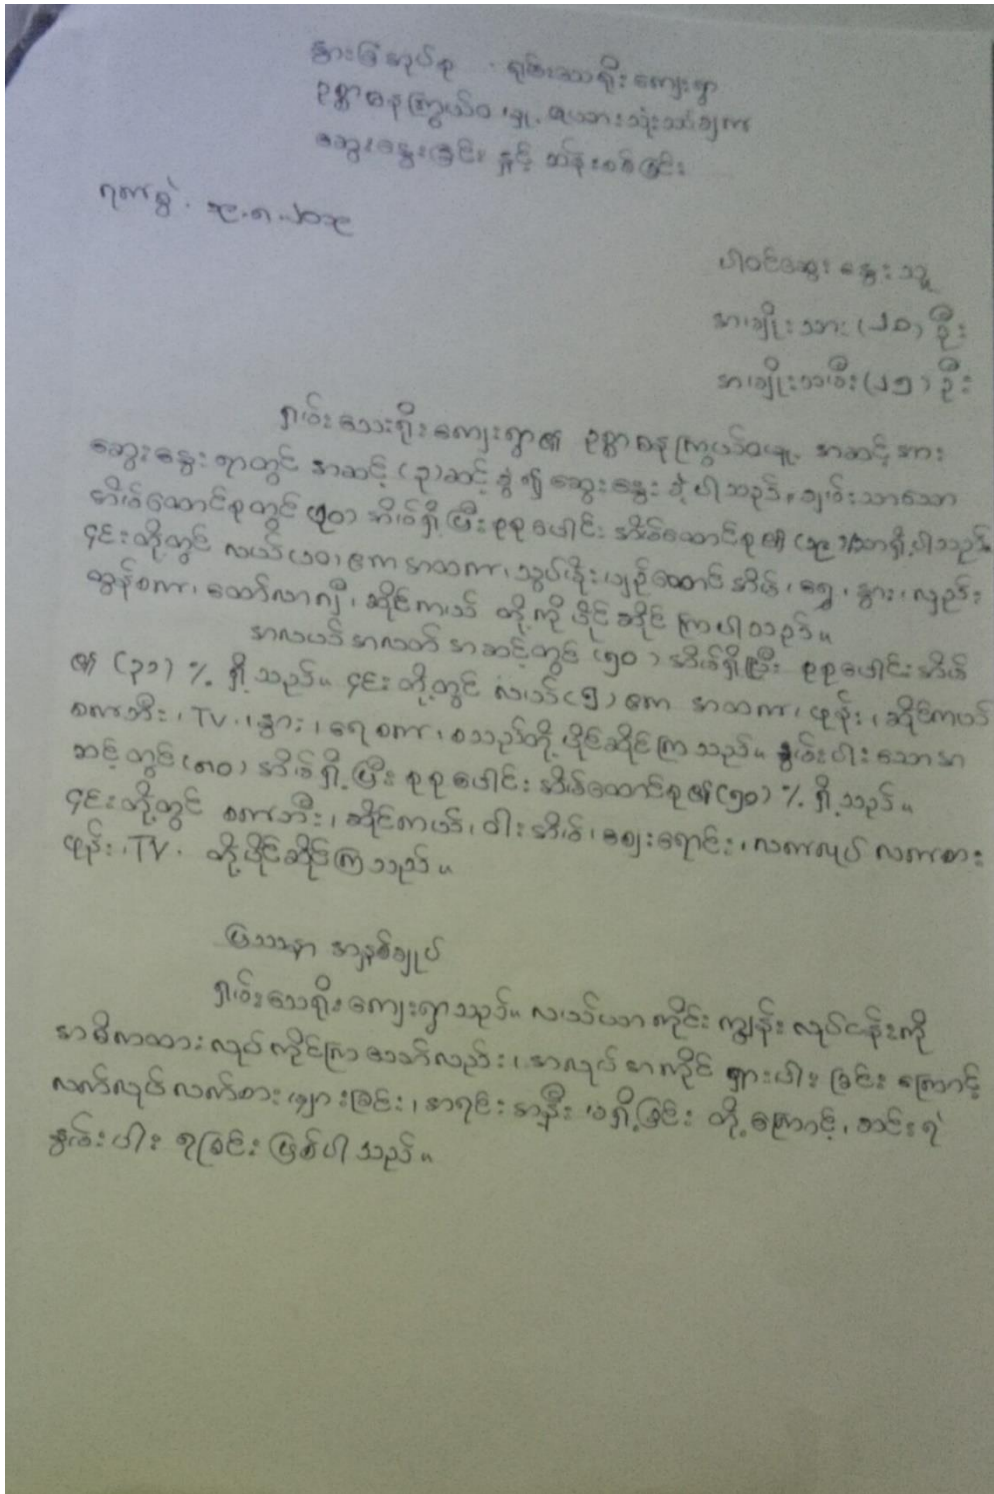 နွားခြံအုပ်စု ၊ ရှမ်းသေရိုးကျေးရွာ
ဥစ္စာဓနကြွယ်ဝမှု, ဇယားသုံးသပ်ချက်
ဆွေးနွေးခြင်း နှင့် ဆန်းစစ်ခြင်း
ရက်စွဲ ၊ ၁၉.၈.၂၀၁၉
ပါဝင်ဆွေးနွေးသူ
အမျိုးသား (၂၀) ဦး
အမျိုးသမီး (၂၅) ဦး
ရှမ်းသေရိုးကျေးရွာ၏ ဥစ္စာဓနကြွယ်ဝမှု, အဆင့်အား
ဆွေးနွေးရာတွင် အဆင့် (၃) ဆင့် ခွဲ၍ ဆွေးနွေးခဲ့ပါသည်။ ချမ်းသာသော
အိမ်ထောင်စုတွင် အိမ်ရှိပြီး စုစုပေါင်း အိမ်ထောင်စု၏ (၁၉) သာရှိပါသည်။
၄င်းတို့တွင် လယ် (၁၀) ဧက အထက်၊ သွပ်မိုး ပျဉ်ထောင်အိမ်၊ ရွှေ၊ နွား၊ လှည်း
ထွန်စက်၊ ထော်လာဂျီ၊ ဆိုင်ကယ် တို့ကို ပိုင်ဆိုင်ကြပါသည်။
အလယ်အလတ် အဆင့်တွင် (၅၀) အိမ်ရှိပြီး စုစုပေါင်းအိမ်
၏ (၃၁) % ရှိသည်။ ၄င်းတို့တွင် လယ် (၅) ဧက အထက်၊ ဖုန်း၊ ဆိုင်ကယ်
စက်ဘီး၊ TV ၊ နွား၊ ရေစက်၊ စသည်တို့ ပိုင်ဆိုင်ကြသည်။ နွမ်းပါးသောအ
ဆင့်တွင် (၈၀) အိမ်ရှိပြီး စုစုပေါင်း အိမ်ထောင်စု၏ (၅၀) % ရှိသည်။
၄င်းတို့တွင် စက်ဘီး၊ ဆိုင်ကယ်၊ ဝါးအိမ်၊ ဈေးရောင်း၊ လက်လုပ် လက်စား
ဖုန်း၊ TV ၊ တို့ပိုင်ဆိုင်ကြသည်။
ပြဿနာ အနှစ်ချုပ်
ရှမ်းသေရိုးကျေးရွာသည်။ လယ်ယာ ကိုင်းကျွန်း လုပ်ငန်းကို
အဓိကထား လုပ်ကိုင်ကြသော်လည်း၊ အလုပ်အကိုင် ရှားပါးခြင်းကြောင့်
လက်လုပ်လက်စား များခြင်း၊ အရင်းအနှီး မရှိခြင်း တို့ကြောင့်၊ ဆင်းရဲ
နွမ်းပါး ရခြင်း ဖြစ်ပါသည်။